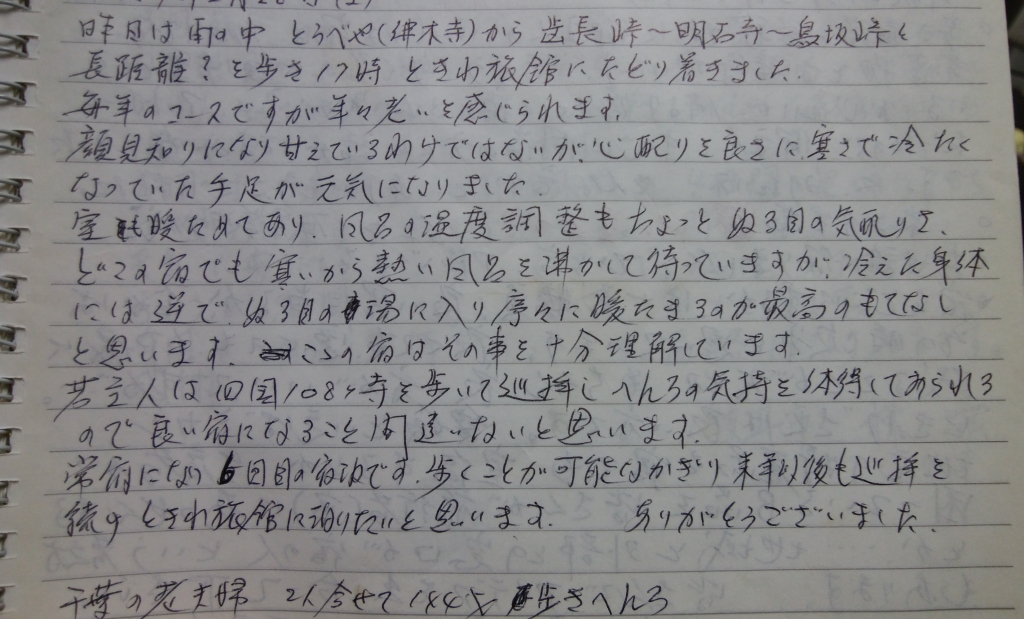 昨日は雨の中 とうべや(佛木寺)から 歯長峠〜明石寺〜鳥坂峠と
長距離?を歩き17時 ときわ旅館にたどり着きました.
毎年のコースですが年々老いを感じられます.
顔見知りになり甘えているわけではないが、心配りを良さに、寒さで冷たく
なっていた手足が元気になりました.
室も暖ためてあり、風呂の温度調整もちょっとぬる目の気配りさ、
どこの宿でも寒いから熱い風呂を沸かして待っていますが、冷えた身体
には逆で、ぬる目の湯に入り序々に暖たまるのが最高のもてなし
と思います. この宿はその事を十分理解しています.
若主人は四国108ヶ寺を歩いて巡拝し へんろの気持を体得しておられる
ので 良い宿になること間違いないと思います.
常宿になり 6回目の宿泊です. 歩くことが可能なかぎり 来年以後も巡拝を
続け ときわ旅館に泊りたいと思います. ありがとうございました.
千葉の老夫婦 2人合せて144才 歩きへんろ